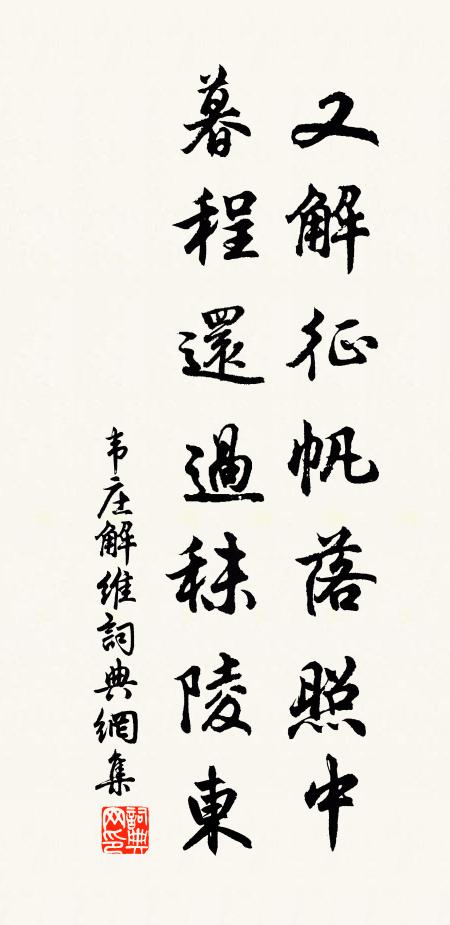 又解征帆落照中
暮程還過秣陵東
韦庄解维詞典網集
詞典
网印